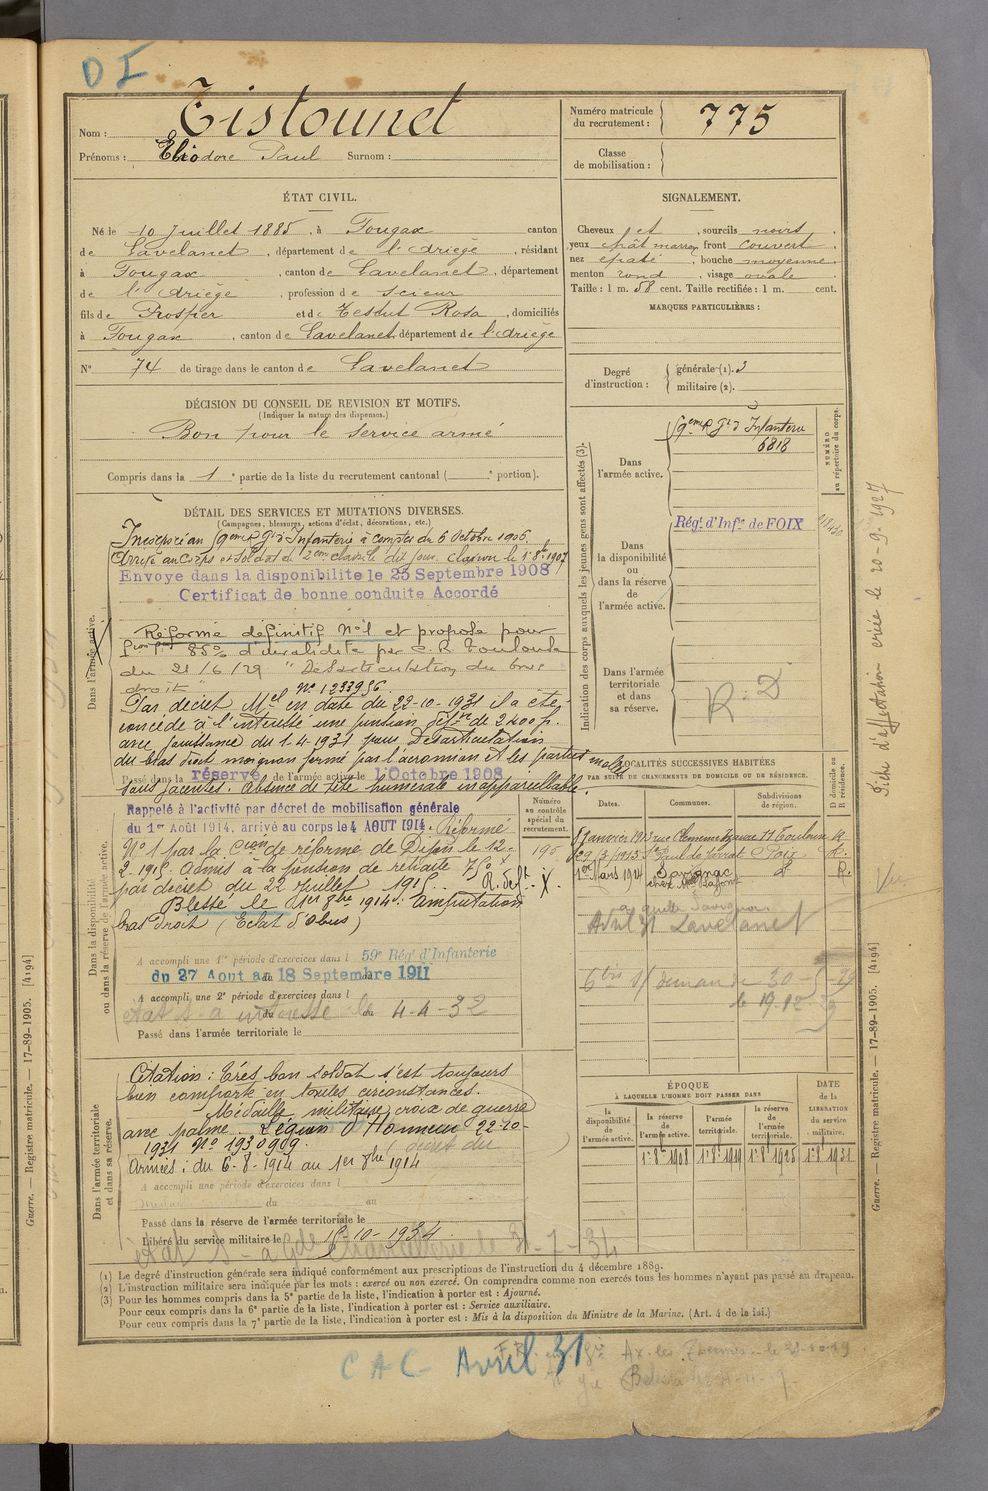 D I
Nom : Tistounet
Prénoms : Eliodore Paul Surnom :
Numéro matricule du recrutement : 775
Classe de mobilisation :
ÉTAT CIVIL.
Né le 10 Juillet 1885, à Fougax canton
de Lavelanet, département de l'Ariège, résidant
à Fougax, canton de Lavelanet, département
de l'Ariège, profession de scieur
fils de Prosper et de Testut Rosa, domiciliés
à Fougax, canton de Lavelanet, département de l'Ariège
N° 74 de tirage dans le canton de Lavelanet
SIGNALEMENT.
Cheveux et, sourcils noirs,
yeux chât marron, front couvert,
nez épaté, bouche moyenne,
menton rond, visage ovale
Taille : 1 m. 58 cent. Taille rectifiée : 1 m. cent.
MARQUES PARTICULIÈRES :
Degré d'instruction : générale (1). 3
militaire (2).
DÉCISION DU CONSEIL DE REVISION ET MOTIFS.
(Indiquer la nature des dispenses.)
Bon pour le service armé
Compris dans la 1e partie de la liste du recrutement cantonal ( e portion).
DÉTAIL DES SERVICES ET MUTATIONS DIVERSES.
(Campagnes, blessures, actions d'éclat, décorations, etc.)
Dans l'armée active.
Incorporé au 9eme Rgt d'Infanterie à compter du 6 Octobre 1906.
Arrivé au Corps et soldat de 2eme classe le dit jour. Clairon le 1. 8bre 1907
Envoyé dans la disponibilité le 25 Septembre 1908
Certificat de bonne conduite Accordé
Réformé définitif N°1 et proposé pour
85% d'invalidité par C. R. Toulouse
du 21/6/29 "Désarticulation du bras
droit" N° 1233956
Par décret Mel en date du 22-10-1931 il a été
concédé à l'intéressé une pension défve de 2400 f.
avec jouissance du 1-4-1931 pour Désarticulation
du bras droit moignon formé par l'acromion et les parties molles
sous jacentes. Absence de tête humérale inappareillable.
Passé dans la réserve de l'armée active le 1 Octobre 1908
Dans la disponibilité ou dans la réserve de l'armée active.
Rappelé à l'activité par décret de mobilisation générale
du 1er Août 1914, arrivé au corps le 4 AOUT 1914. Réformé
N° 1 par la Cion de réforme de Dijon le 12-
2-1915. Admis à la pension de retraite 750 x
par décret du 22 Juillet 1915. R. déft. X.
Blessé le 1er 8bre 1914: amputation
bras droit (Eclat d'obus)
A accompli une 1re période d'exercices dans l 59e Rég. d'Infanterie
du 27 Aout au 18 Septembre 1911
A accompli une 2e période d'exercices dans l
du 4-4-32
Passé dans l'armée territoriale le
Numéro au contrôle spécial du recrutement.
195
Dans l'armée territoriale et dans sa réserve.
Citation : Très bon soldat s'est toujours
bien comporté en toutes circonstances.
Médaille militaire, croix de guerre
avec palme. Légion d'Honneur 22-10-
1931 N° 1930909. (décret du )
Armées : du 6-8-1914 au 1er 8bre 1914
A accompli une période d'exercices dans l
du au
Passé dans la réserve de l'armée territoriale le
Libéré du service militaire le 15-10-1934.
le 31-7-34
Indication des corps auxquels les jeunes gens sont affectés (3).
NUMÉRO au répertoire du corps.
Dans l'armée active.
9eme Rgt d'Infanterie
6818
Dans la disponibilité ou dans la réserve de l'armée active.
Rég. d'Infie de FOIX
Dans l'armée territoriale et dans sa réserve.
R. D
LOCALITÉS SUCCESSIVES HABITÉES
PAR SUITE DE CHANGEMENTS DE DOMICILE OU DE RÉSIDENCE.
Dates. Communes. Subdivisions de région. D domicile ou R résidence.
8 Janvier 1913 rue Clemence Isaure 17 Toulouse R.
29/3/1913 St Paul de Jarrat Foix R.
1er Mars 1921 Savignac d° R.
chez Mme Lafont
a quitté Savignac
Avril 31 Lavelanet
30-5-29
le 19-12-29
ÉPOQUE
À LAQUELLE L'HOMME DOIT PASSER DANS
la disponibilité de l'armée active.
la réserve de l'armée active.
l'armée territoriale.
la réserve de l'armée territoriale.
DATE de la LIBÉRATION du service militaire.
1.8bre 1908 1.8bre 1919 1.8bre 1925 1.8bre 1931
(1) Le degré d'instruction générale sera indiqué conformément aux prescriptions de l'instruction du 4 décembre 1889.
(2) L'instruction militaire sera indiquée par les mots : exercé ou non exercé. On comprendra comme non exercés tous les hommes n'ayant pas passé au drapeau.
(3) Pour les hommes compris dans la 5e partie de la liste, l'indication à porter est : Ajourné.
Pour ceux compris dans la 6e partie de la liste, l'indication à porter est : Service auxiliaire.
Pour ceux compris dans la 7e partie de la liste, l'indication à porter est : Mis à la disposition du Ministre de la Marine. (Art. 4 de la loi.)
CAC Avril 31
Ax-les-Thermes le
Fiche d'affectation créée le 20-9-1927
Vu
Guerre. — Registre matricule. — 17-89-1905. [4194]
Guerre. — Registre matricule. — 17-89-1905. [4194]